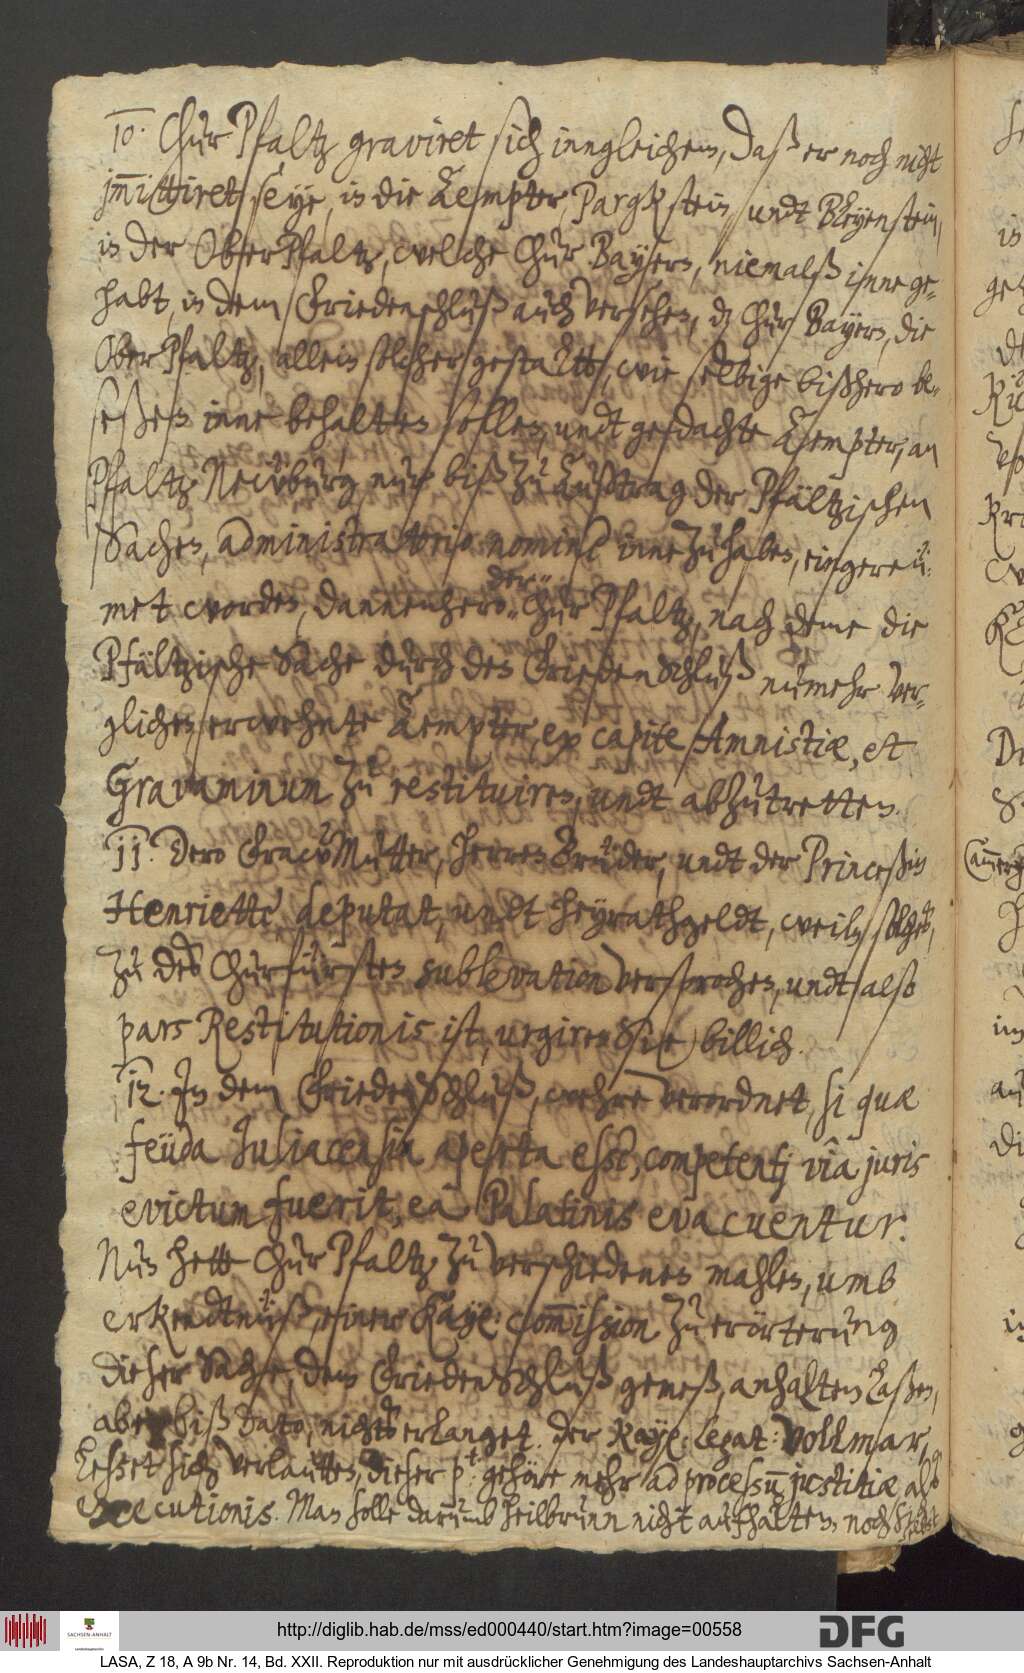 10. Chur Pfaltz graviret sich inngleichen, daß er noch nicht
im̄ittiret seye, in die Aempter, Pargkstein, undt Pleyenstein,
in der OberPfaltz, welche Chur Bayern, niemalß inne ge-
habt, in dem Friedenschluß auch versehen, dz Chur Bayern, die
OberPfaltz, allein solcher gestaltt, wie selbige bißhero be-
seßen inne behalten sollen, undt gedachte Aempter, an
Pfaltz Neüburg nur biß zu Außtrag der Pfältzischen
Sachen, administratorio nomine inne zu haben, eingereü-
met worden, dannenhero der Chur Pfaltz, nach deme die
Pfältzische Sache durch den FriedenSchluß numehr ver-
glichen, erwehnte Aempter, ex capite Amnistiæ, et
Gravaminum zu restituiren, undt abzutretten.
11. Dero Fraw Mutter, Herren Brüder, undt der Princeßin
Henriette deputat, undt Heyrathgeldt, weiln solches,
zu des Churfürsten sublevation versprochen, undt also
pars Restitutionis ist, urgiren Sie billich.
12. In dem FriedenSchluß, wehre verordnet, si quæ
feüda Juliacensia aperta esse, competentj viâ juris
evictum fuerit, ea Palatinis evacuentur.
Nun hette Chur Pfaltz zu verschiedenen mahlen, umb
erkendtnüß, einer Kayl: com̄ission zu erörterung
dieser Sache, dem FriedenSchluß gemeß, anhalten Laßen,
aber biß dato, nichts erlanget. der Kayl: Legat: Vollmar,
Leßet sich verlautten, dieser pt: gehöre mehr ad processū justitiæ alß
executionis. Man solle darumb Heilbrunn nicht aufhalten, noch sich
selbst
http://diglib.hab.de/mss/ed000440/start.htm?image=00558
SACHSEN-ANHALT
DFG
LASA, Z 18, A 9b Nr. 14, Bd. XXII. Reproduktion nur mit ausdrücklicher Genehmigung des Landeshauptarchivs Sachsen-Anhalt